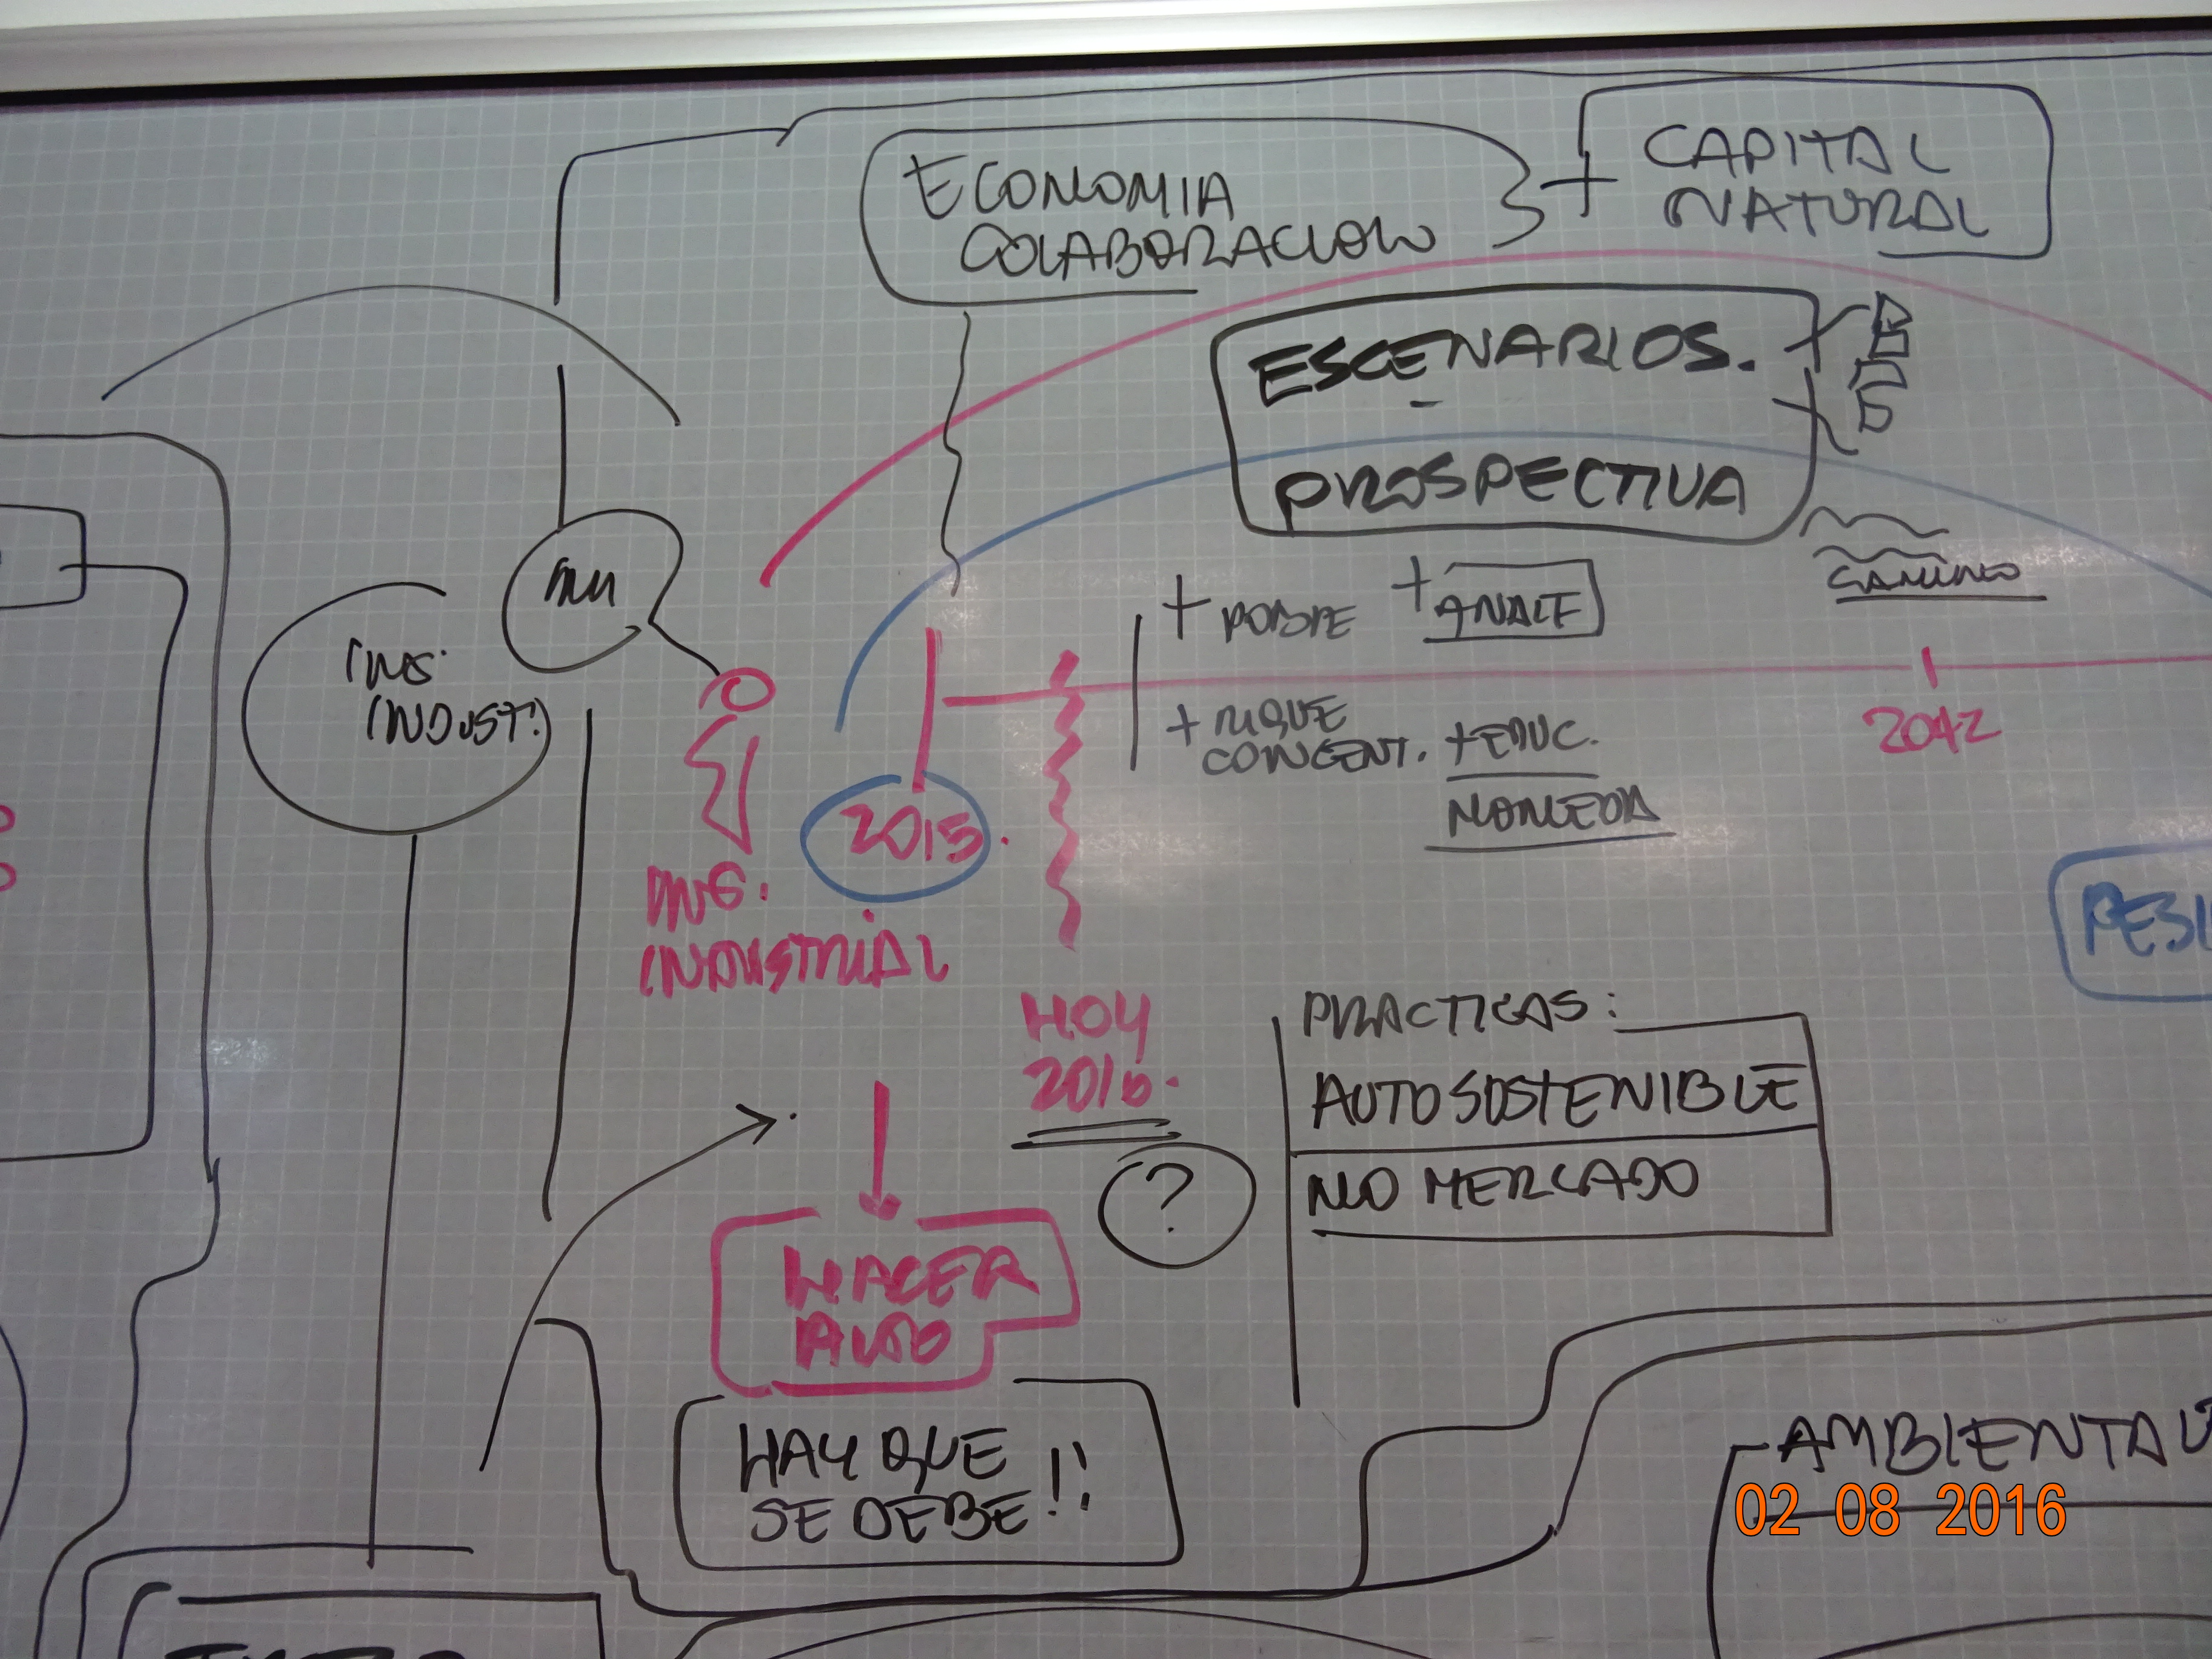 ECONOMIA
COLABORACION
+ CAPITAL
NATURAL
ESCENARIOS.
PROSPECTIVA
CAMINO
+ POBRE + ANALF
+ RIQUE
CONCENT. + EDUC.
MONEDA
2042
ING.
INDUST.
2015.
ING.
INDUSTRIAL
HOY
2016.
?
PRACTICAS:
AUTOSOSTENIBLE
NO MERCADO
HACER
ALGO
HAY QUE
SE DEBE!!
AMBIENTAL
02 08 2016